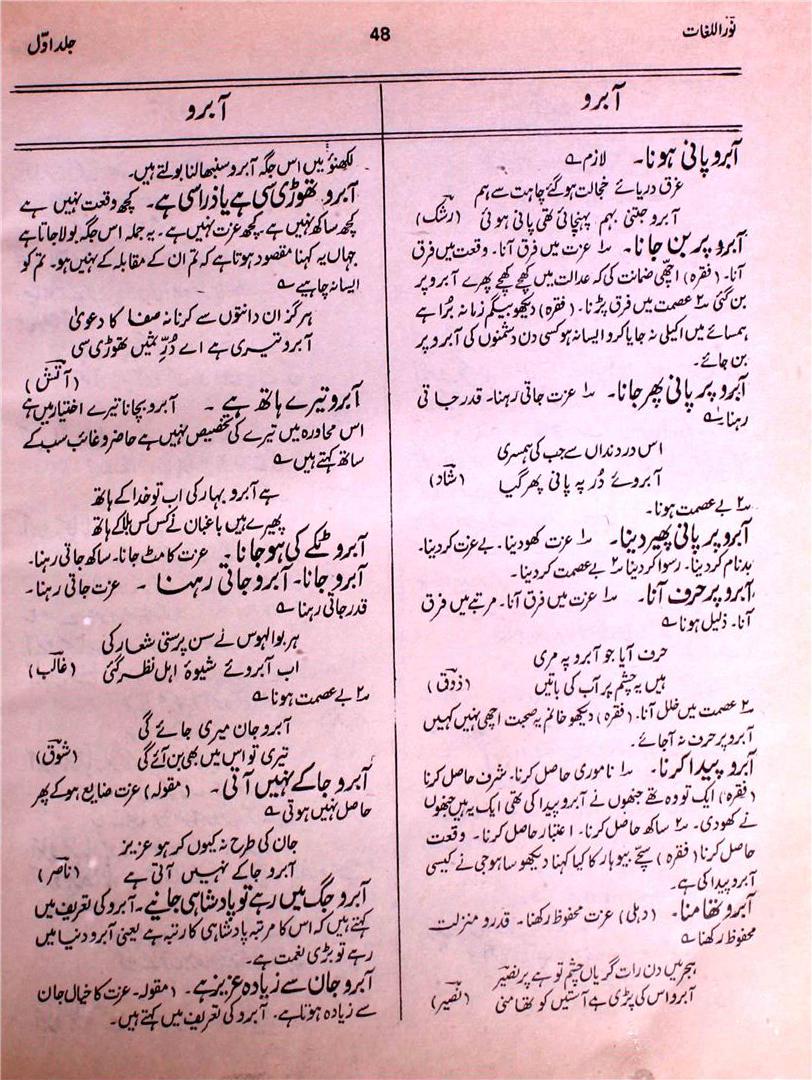 نوراللغات
48
جلد اوّل
آبرو
آبرو
آبرو پانی ہونا۔ لازم ؎
غرق دریائے خجالت ہوگئے چاہت سے ہم
آبرو جتنی بہم پہنچائی تھی پانی ہوئی (رشک)
آبرو پر بن جانا۔ ۱؎ عزت میں فرق آنا۔ وقعت میں فرق
آنا۔ (فقرہ) اچھی ضمانت کی کہ عدالت میں کھچے کھچے پھرے آبرو پر
بن گئی ۲؎ عصمت میں فرق پڑنا۔ (فقرہ) دیکھو بیگم زمانہ بُرا ہے
ہمسائے میں اکیلی نہ جایا کرو ایسا نہ ہو کسی دن دشمنوں کی آبرو پر
بن جائے۔
آبرو پر پانی پھر جانا۔ ۱؎ عزت جاتی رہنا۔ قدر جاتی
رہنا ؎
اس در دنداں سے جب کی ہمسری
آبروئے دُر پہ پانی پھر گیا (شاد)
۲؎ بے عصمت ہونا۔
آبرو پر پانی پھیر دینا۔ ۱؎ عزت کھو دینا۔ بے عزت کر دینا۔
بدنام کر دینا۔ رسوا کر دینا ۲؎ بے عصمت کر دینا۔
آبرو پر حرف آنا۔ ۱؎ عزت میں فرق آنا۔ مرتبے میں فرق
آنا۔ ذلیل ہونا ؎
حرف آیا جو آبرو پہ مری
ہیں یہ چشم پر آب کی باتیں (ذوق)
۲؎ عصمت میں خلل آنا۔ (فقرہ) دیکھو خانم یہ صحبت اچھی نہیں کہیں
آبرو پر حرف نہ آجائے۔
آبرو پیدا کرنا۔ ۱؎ ناموری حاصل کرنا۔ شرف حاصل کرنا
(فقرہ) ایک تو وہ تھے جنھوں نے آبرو پیدا کی تھی ایک یہ ہیں جنھوں
نے کھو دی۔ ۲؎ ساکھ حاصل کرنا۔ اعتبار حاصل کرنا۔ وقعت
حاصل کرنا (فقرہ) سچے بیوہار کا کیا کہنا دیکھو ساہوجی نے کیسی
آبرو پیدا کی ہے۔
آبرو تھامنا۔ (دہلی) عزت محفوظ رکھنا۔ قدر و منزلت
محفوظ رکھنا ؎
ہجر میں دن رات گریاں چشم تو ہے پر نصیر
آبرو اس کی پڑی ہے آستیں کو تھامنی (نصیر)
لکھنؤ میں اس جگہ آبرو سنبھالنا بولتے ہیں۔
آبرو تھوڑی سی ہے یا ذرا سی ہے۔ کچھ وقعت نہیں ہے
کچھ ساکھ نہیں ہے۔ کچھ عزت نہیں ہے۔ یہ جملہ اس جگہ بولا جاتا ہے
جہاں یہ کہنا مقصود ہوتا ہے کہ تم ان کے مقابلہ کے نہیں ہو۔ تم کو
ایسا نہ چاہیے ؎
ہرگز ان دانتوں سے کرنا نہ صفا کا دعویٰ
آبرو تیری ہے اے دُرِّ ثمیں تھوڑی سی
(آتش)
آبرو تیرے ہاتھ ہے۔ آبرو بچانا تیرے اختیار میں ہے
اس محاورہ میں تیرے کی تخصیص نہیں ہے حاضر و غائب سب کے
ساتھ کہتے ہیں ؎
ہے آبرو بہار کی اب تو خدا کے ہاتھ
پھیرے ہیں باغباں نے کس کس بلا کے ہاتھ
آبرو ٹکے کی ہو جانا۔ عزت کا مٹ جانا۔ ساکھ جاتی رہنا۔
آبرو جانا۔ آبرو جاتی رہنا۔ عزت جاتی رہنا۔
قدر جاتی رہنا ؎
ہر بوالہوس نے حسن پرستی شعار کی
اب آبروئے شیوۂ اہل نظر گئی (غالب)
۲؎ بے عصمت ہونا ؎
آبرو جان میری جائے گی
تیری تو اس میں بھی بن آئے گی (شوق)
آبرو جاکے نہیں آتی۔ (مقولہ) عزت ضایع ہوکے پھر
حاصل نہیں ہوتی ؎
جان کی طرح نہ کیوں کر ہو عزیز
آبرو جاکے نہیں آتی ہے (ناصر)
آبرو جگ میں رہے تو پادشاہی جانیے۔ آبرو کی تعریف میں
کہتے ہیں کہ اس کا مرتبہ پادشاہی کا رتبہ ہے یعنی آبرو دنیا میں
رہے تو بڑی نعمت ہے۔
آبرو جان سے زیادہ عزیز ہے۔ (مقولہ۔ عزت کا خیال جان
سے زیادہ ہوتا ہے۔ آبرو کی تعریف میں کہتے ہیں۔